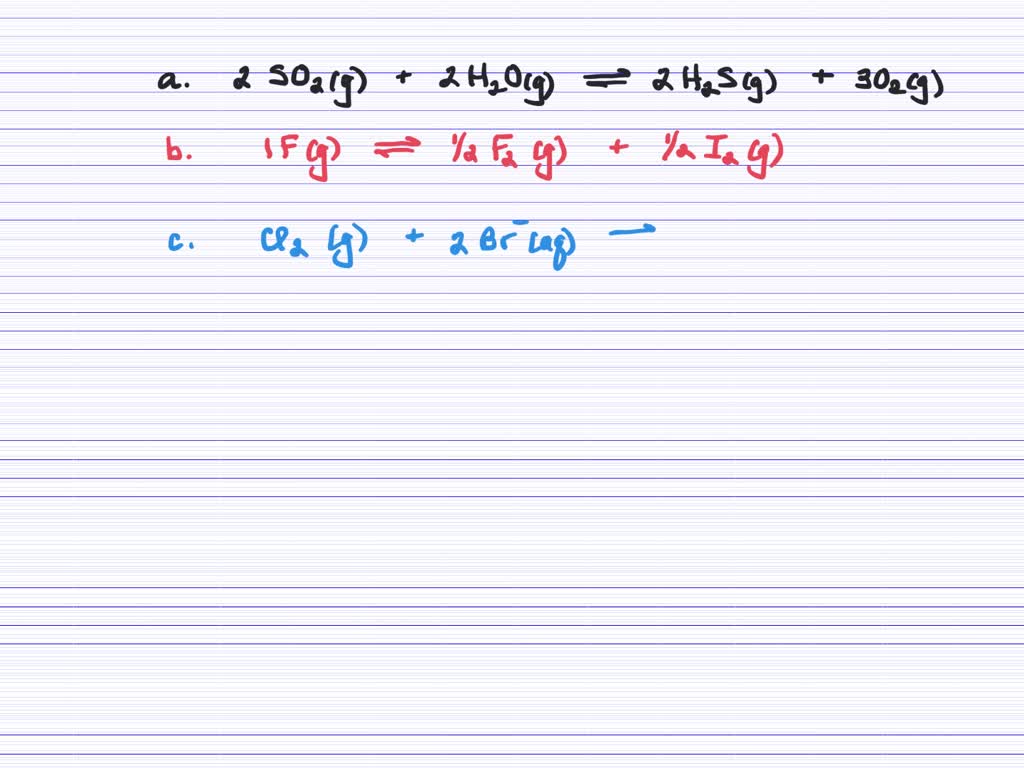 a. 2 SO₂(g) + 2H₂O(g) ⇌ 2H₂S(g) + 3O₂(g)
b. IF(g) ⇌ 1/2 F₂(g) + 1/2 I₂(g)
c. Cl₂(g) + 2Br⁻(aq) ⇀